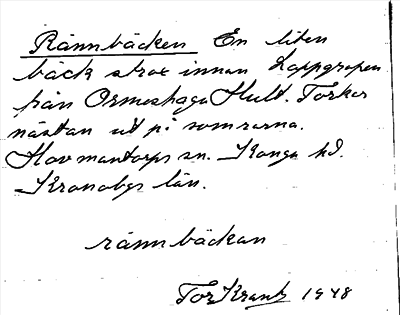 Rännbäcken En liten
bäck strax innan Lappgropen
från Ormeshaga Hult. Torkar
nästan ut på somrarna.
Hovmantorps sn. Konga hd.
Kronobgs län.
rännbäkan
Tor Krantz 1948